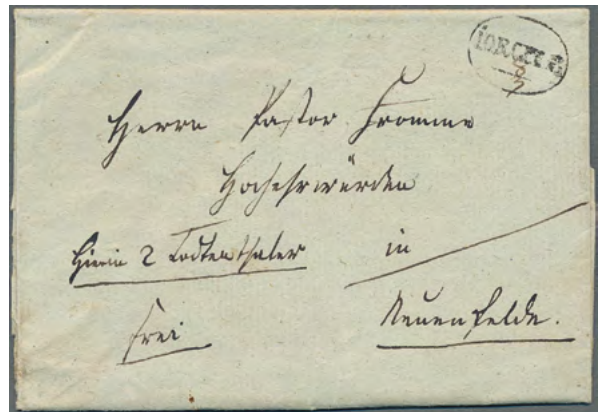 IORCK
8
7
Herrn Pastor Fromme
Hochehrwürden
Hierin 2 Todtenthaler in
frei Neuenfelde.